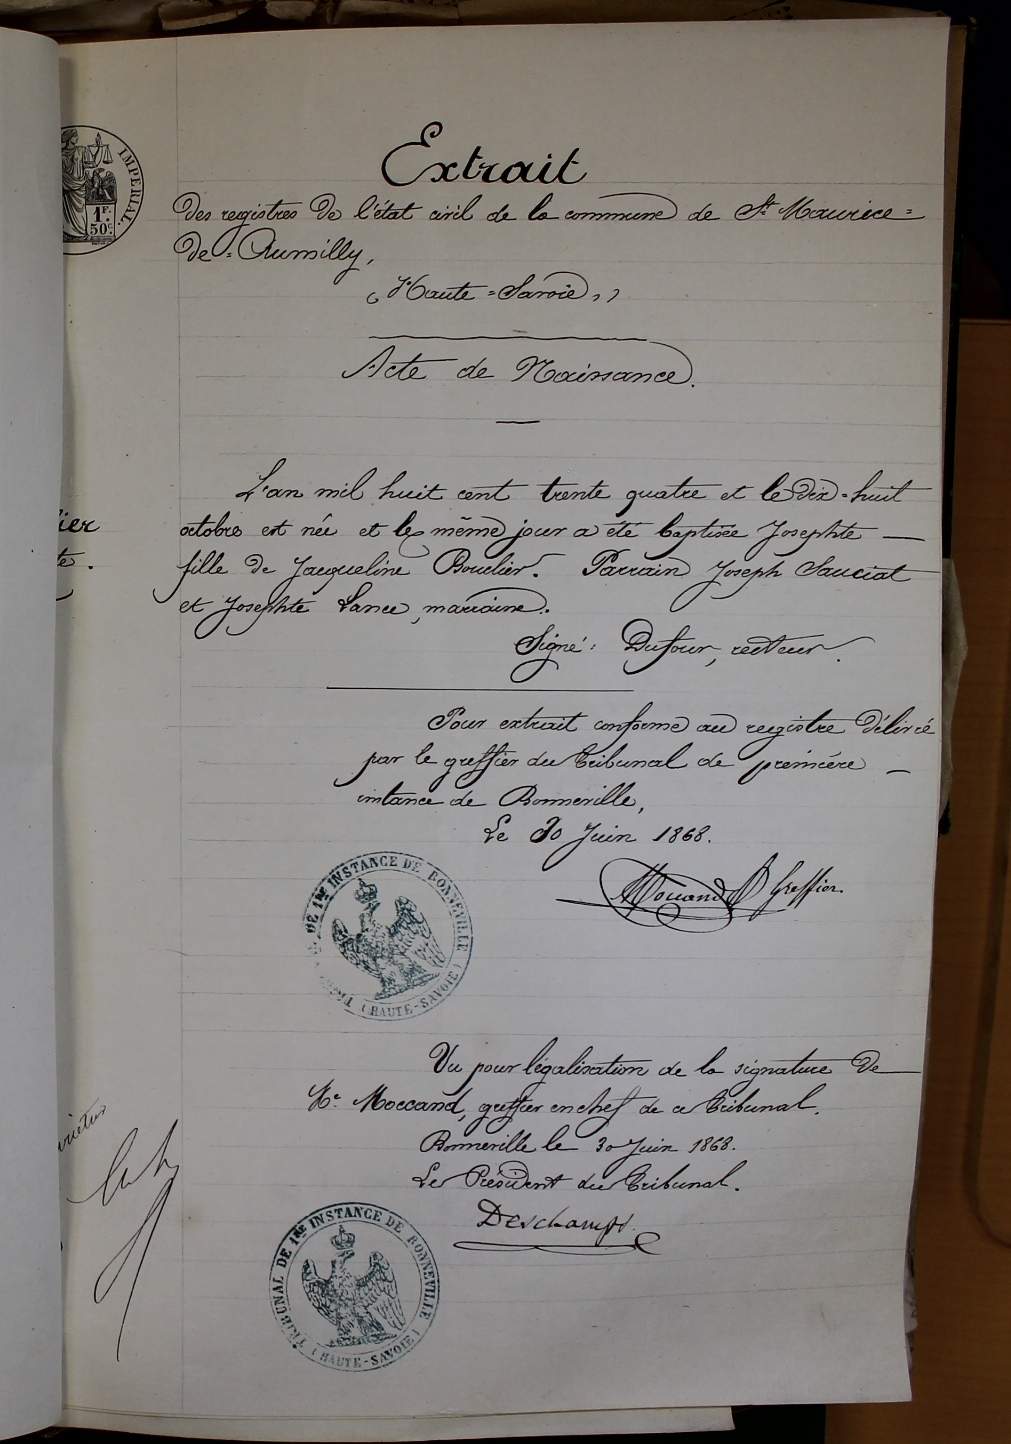 IMPERIAL.
1F.
50c.
Extrait
des registres de l'état civil de la commune de St Maurice=
de=Rumilly,
(Haute=Savoie,)
Acte de Naissance.
ier
te.
L'an mil huit cent trente quatre et le dix=huit
octobre est née et le même jour a été baptisée Josephte —
fille de Jacqueline Bouclier. Parrain Joseph Sauciat
et Josephte Lance, marraine.
Signé: Dufour, recteur.
Pour extrait conforme au registre délivré
par le greffier du Tribunal de première —
instance de Bonneville,
Le 30 Juin 1868.
Moccand Greffier.
TRIBUNAL DE 1RE INSTANCE DE BONNEVILLE
(HAUTE-SAVOIE)
Vu pour légalisation de la signature de
Me Moccand, greffier en chef de ce Tribunal.
Bonneville le 30 Juin 1868.
Le Président du Tribunal.
Deschamps.
TRIBUNAL DE 1RE INSTANCE DE BONNEVILLE
(HAUTE-SAVOIE)